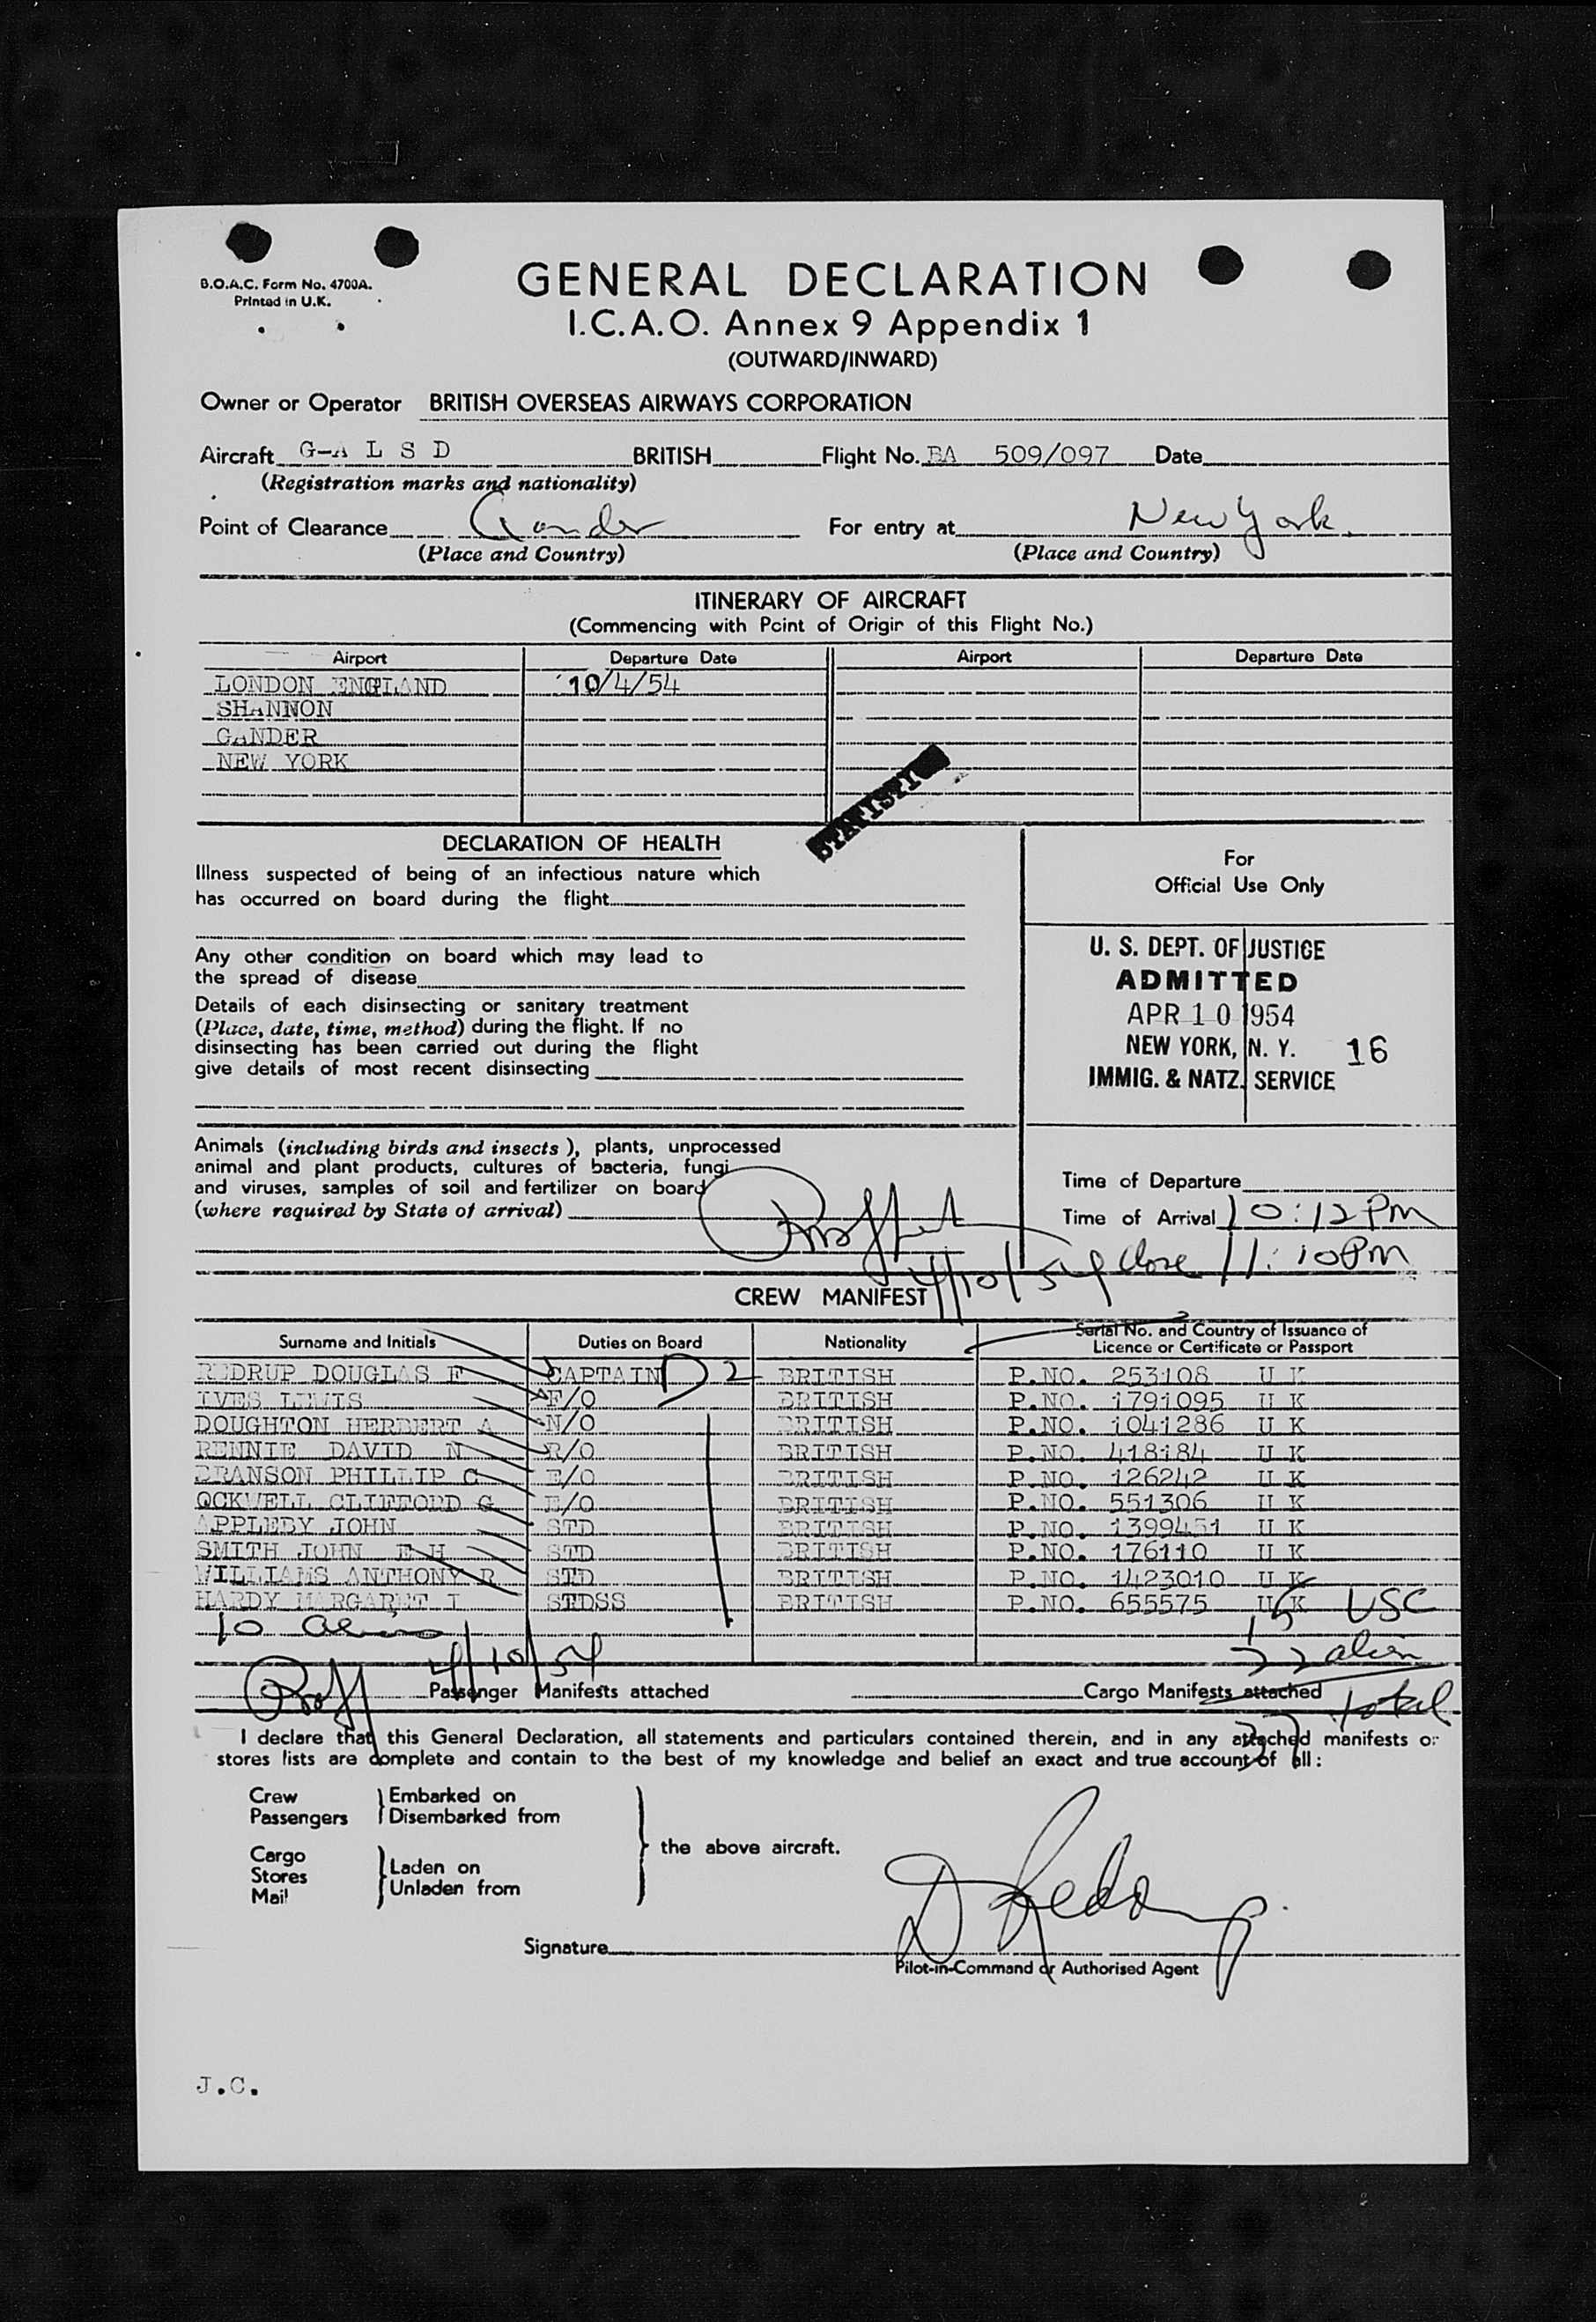 B.O.A.C. Form No. 4700A.
Printed in U.K.
GENERAL DECLARATION
I.C.A.O. Annex 9 Appendix 1
(OUTWARD/INWARD)
Owner or Operator BRITISH OVERSEAS AIRWAYS CORPORATION
Aircraft G-A L S D BRITISH Flight No. BA 509/097 Date
(Registration marks and nationality)
Point of Clearance Gander For entry at New York
(Place and Country) (Place and Country)
ITINERARY OF AIRCRAFT
(Commencing with Point of Origin of this Flight No.)
Airport Departure Date Airport Departure Date
LONDON ENGLAND 10/4/54
SHANNON
GANDER
NEW YORK
DECLARATION OF HEALTH
Illness suspected of being of an infectious nature which
has occurred on board during the flight
Any other condition on board which may lead to
the spread of disease
Details of each disinsecting or sanitary treatment
(Place, date, time, method) during the flight. If no
disinsecting has been carried out during the flight
give details of most recent disinsecting
For
Official Use Only
U. S. DEPT. OF JUSTICE
ADMITTED
APR 10 1954
NEW YORK, N. Y. 16
IMMIG. & NATZ. SERVICE
Animals (including birds and insects), plants, unprocessed
animal and plant products, cultures of bacteria, fungi
and viruses, samples of soil and fertilizer on board
(where required by State of arrival)
Time of Departure
Time of Arrival 10:12 PM
4/10/54 Close 11:10 PM
CREW MANIFEST
Surname and Initials Duties on Board Nationality Serial No. and Country of Issuance of
Licence or Certificate or Passport
REDRUP DOUGLAS F CAPTAIN D 2 BRITISH P.NO. 253108 U K
IVES LEWIS F/O BRITISH P.NO. 1791095 U K
DOUGHTON HERBERT A N/O BRITISH P.NO. 1041286 U K
RENNIE DAVID N R/O BRITISH P.NO. 418184 U K
BRANSON PHILLIP C E/O BRITISH P.NO. 126242 U K
OCKWELL CLIFFORD G E/O BRITISH P.NO. 551306 U K
APPLEBY JOHN STD BRITISH P.NO. 1399451 U K
SMITH JOHN E H STD BRITISH P.NO. 176110 U K
WILLIAMS ANTHONY R STD BRITISH P.NO. 1423010 U K
HARDY MARGARET I STDSS BRITISH P.NO. 655575 U K
10 Aliens 15 USC
4/10/54 22 alien
Passenger Manifests attached Cargo Manifests attached
37 total
I declare that this General Declaration, all statements and particulars contained therein, and in any attached manifests or
stores lists are complete and contain to the best of my knowledge and belief an exact and true account of all:
Crew
Passengers
Embarked on
Disembarked from
Cargo
Stores
Mail
Laden on
Unladen from
the above aircraft.
Signature D Redrup
Pilot-in-Command or Authorised Agent
J.C.